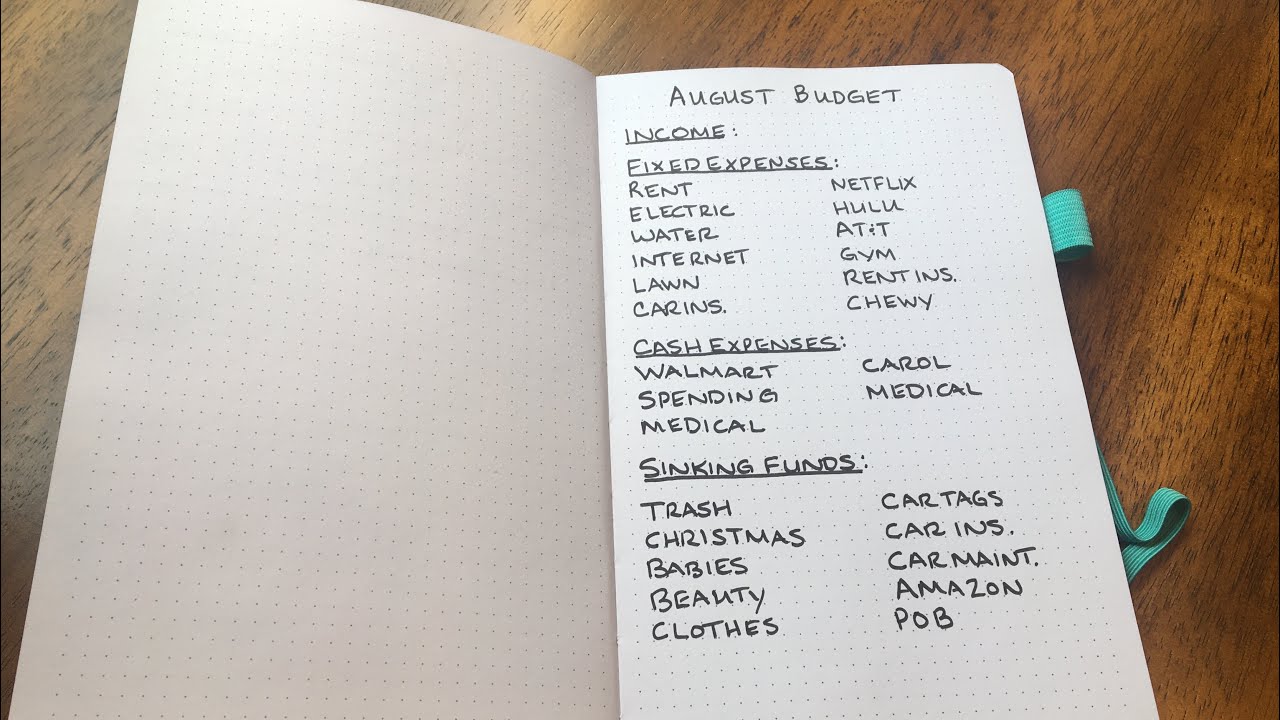 AUGUST BUDGET
INCOME:
FIXED EXPENSES:
RENT NETFLIX
ELECTRIC HULU
WATER AT&T
INTERNET GYM
LAWN RENT INS.
CAR INS. CHEWY
CASH EXPENSES:
WALMART CAROL
SPENDING MEDICAL
MEDICAL
SINKING FUNDS:
TRASH CAR TAGS
CHRISTMAS CAR INS.
BABIES CAR MAINT.
BEAUTY AMAZON
CLOTHES POB